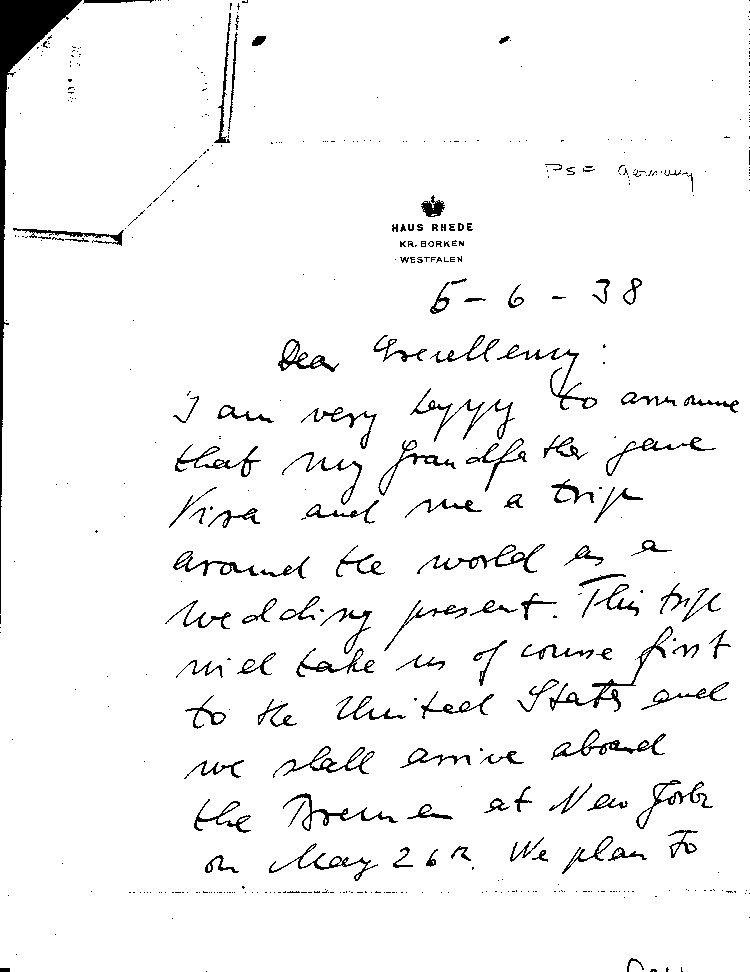 PSF Germany
HAUS RHEDE
KR. BORKEN
WESTFALEN
5-6-38
Dear Excellency:
I am very happy to announce
that my Grandfather gave
Kira and me a trip
around the world as a
wedding present. This trip
will take us of course first
to the United States and
we shall arrive aboard
the Bremen at New York
on May 26th. We plan to